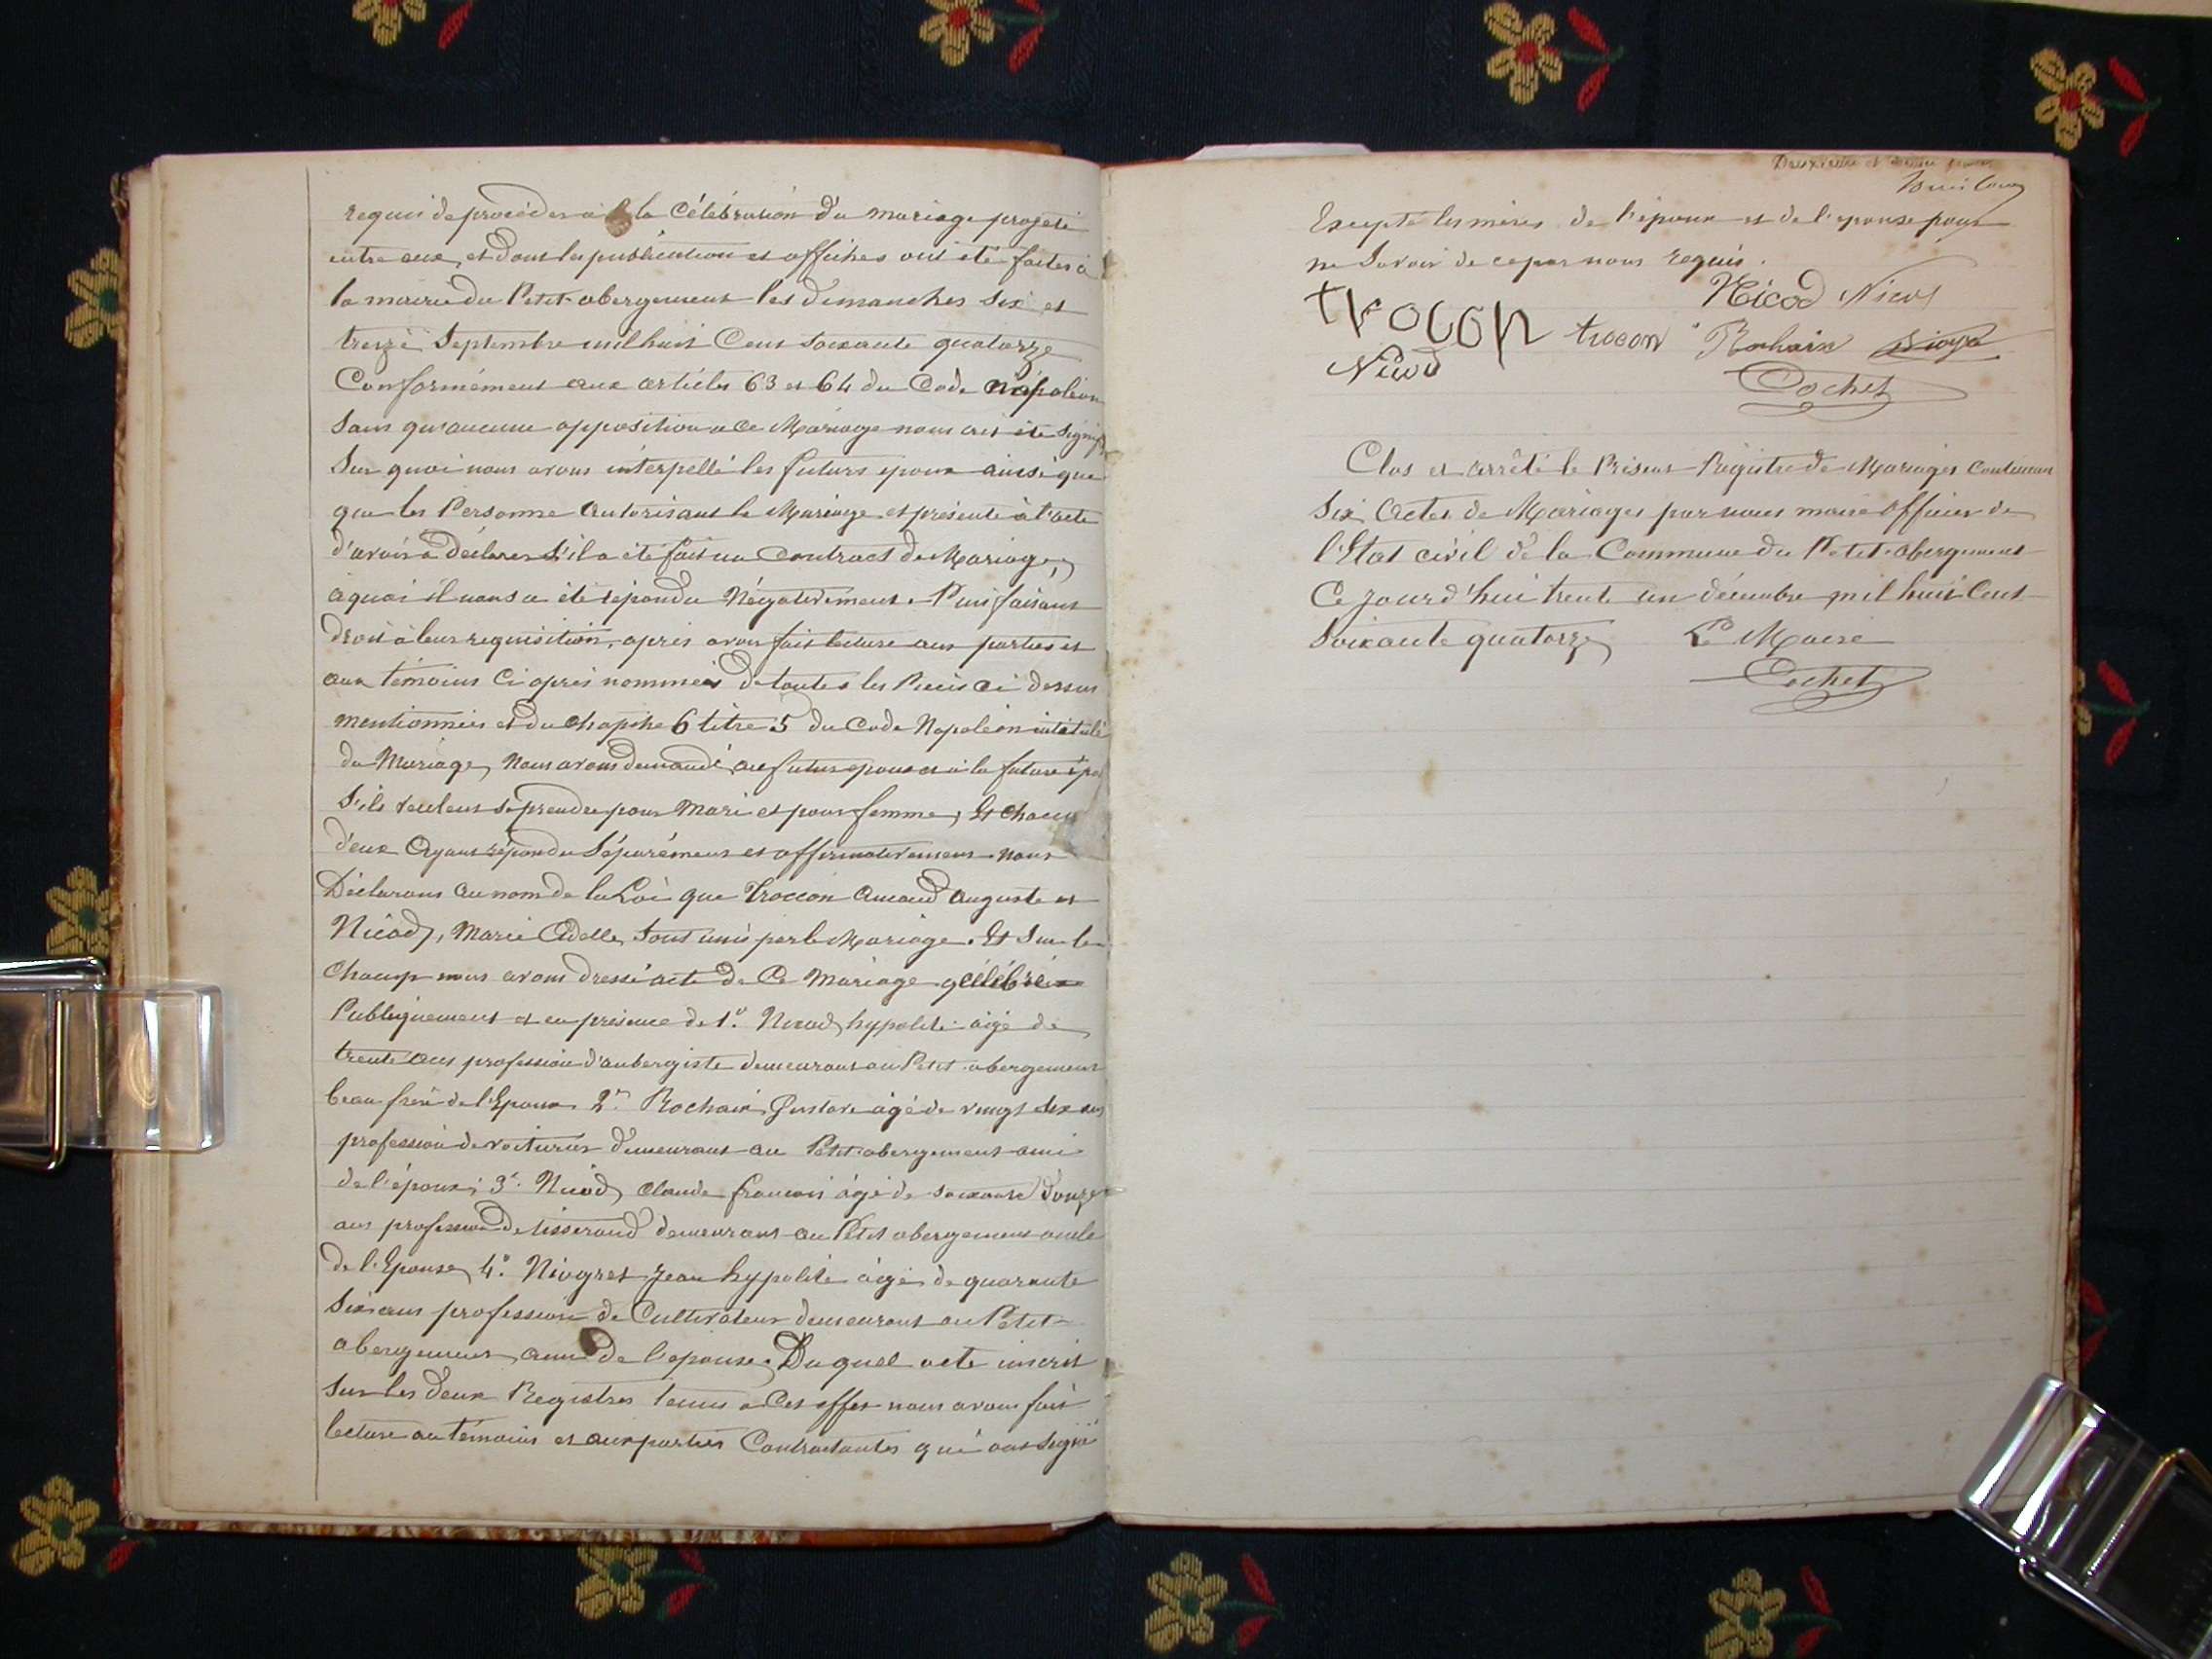 requis de procéder à la Célébration du mariage projeté
entre eux, et dont les publications et affiches ont été faites à
la mairie du Petit-abergement les dimanches six et
treize Septembre mil huit Cent soixante quatorze
Conformément aux articles 63 et 64 du Code napoléon
Sans qu'aucune opposition a ce Mariage nous ait été signif
Sur quoi nous avons interpellé les futurs époux ainsi que
que les Personne autorisant le Mariage et présente à l'acte
d'avoir a Déclarer S'il a été fait un Contract de Mariage,
à quoi il nous a été répondu Négativement. Puis faisant
droit à leur requisition, après avoir fait lecture aux parties et
aux témoins Ci après nommés de toutes les Pièces ci dessus
mentionnées et du chapitre 6 titre 5 du Code Napoléon intitulé
du Mariage, Nous avons demandé au futur époux et à la future épo
S'ils veulent se prendre pour Mari et pour femme, Et chacun
d'eux Ayant répondu Séparément et affirmativement nous
Déclarons au nom de la Loi que Troccon Amand Auguste et
Nicod, Marie Adelle, sont unis par le Mariage. Et Sur le
Champ nous avons dressé acte de Ce Mariage célébré
Publiquement et en présence de 1° Nicod hypolite âgé de
trente ans profession d'aubergiste demeurant au Petit-abergement
beau frère de l'Epoux 2° Rochaix Gustave âgé de vingt six ans
profession de voiturier demeurant au Petit abergement ami
de l'époux; 3° Nicod, Claude françois âgé de soixante douze
ans profession de tisserand demeurant au Petit abergement oncle
de l'Epouse, 4° Niogret Jean hypolite âgé de quarante
Six ans profession de Cultivateur demeurant au Petit-
abergement, ami de l'épouse, Duquel acte inscrit
Sur les deux Registres tenus a Cet effet nous avons fait
lecture au témoins et aux parties Contractantes qui ont signé
Deuxième et
Excepté les mères de l'époux et de l'épouse pour
ne Savoir de ce par nous requis.
Nicod Nicod
trocon trocon Rochaix
Nicod
Cochet
Clos et arrêté le Présent Régistre de Mariages contenan
Six Actes de Mariages par nous maire officier de
l'Etat civil de la Commune du Petit-abergement
Ce jourd'hui trente un décembre mil huit Cent
Soixante quatorze Le Maire
Cochet